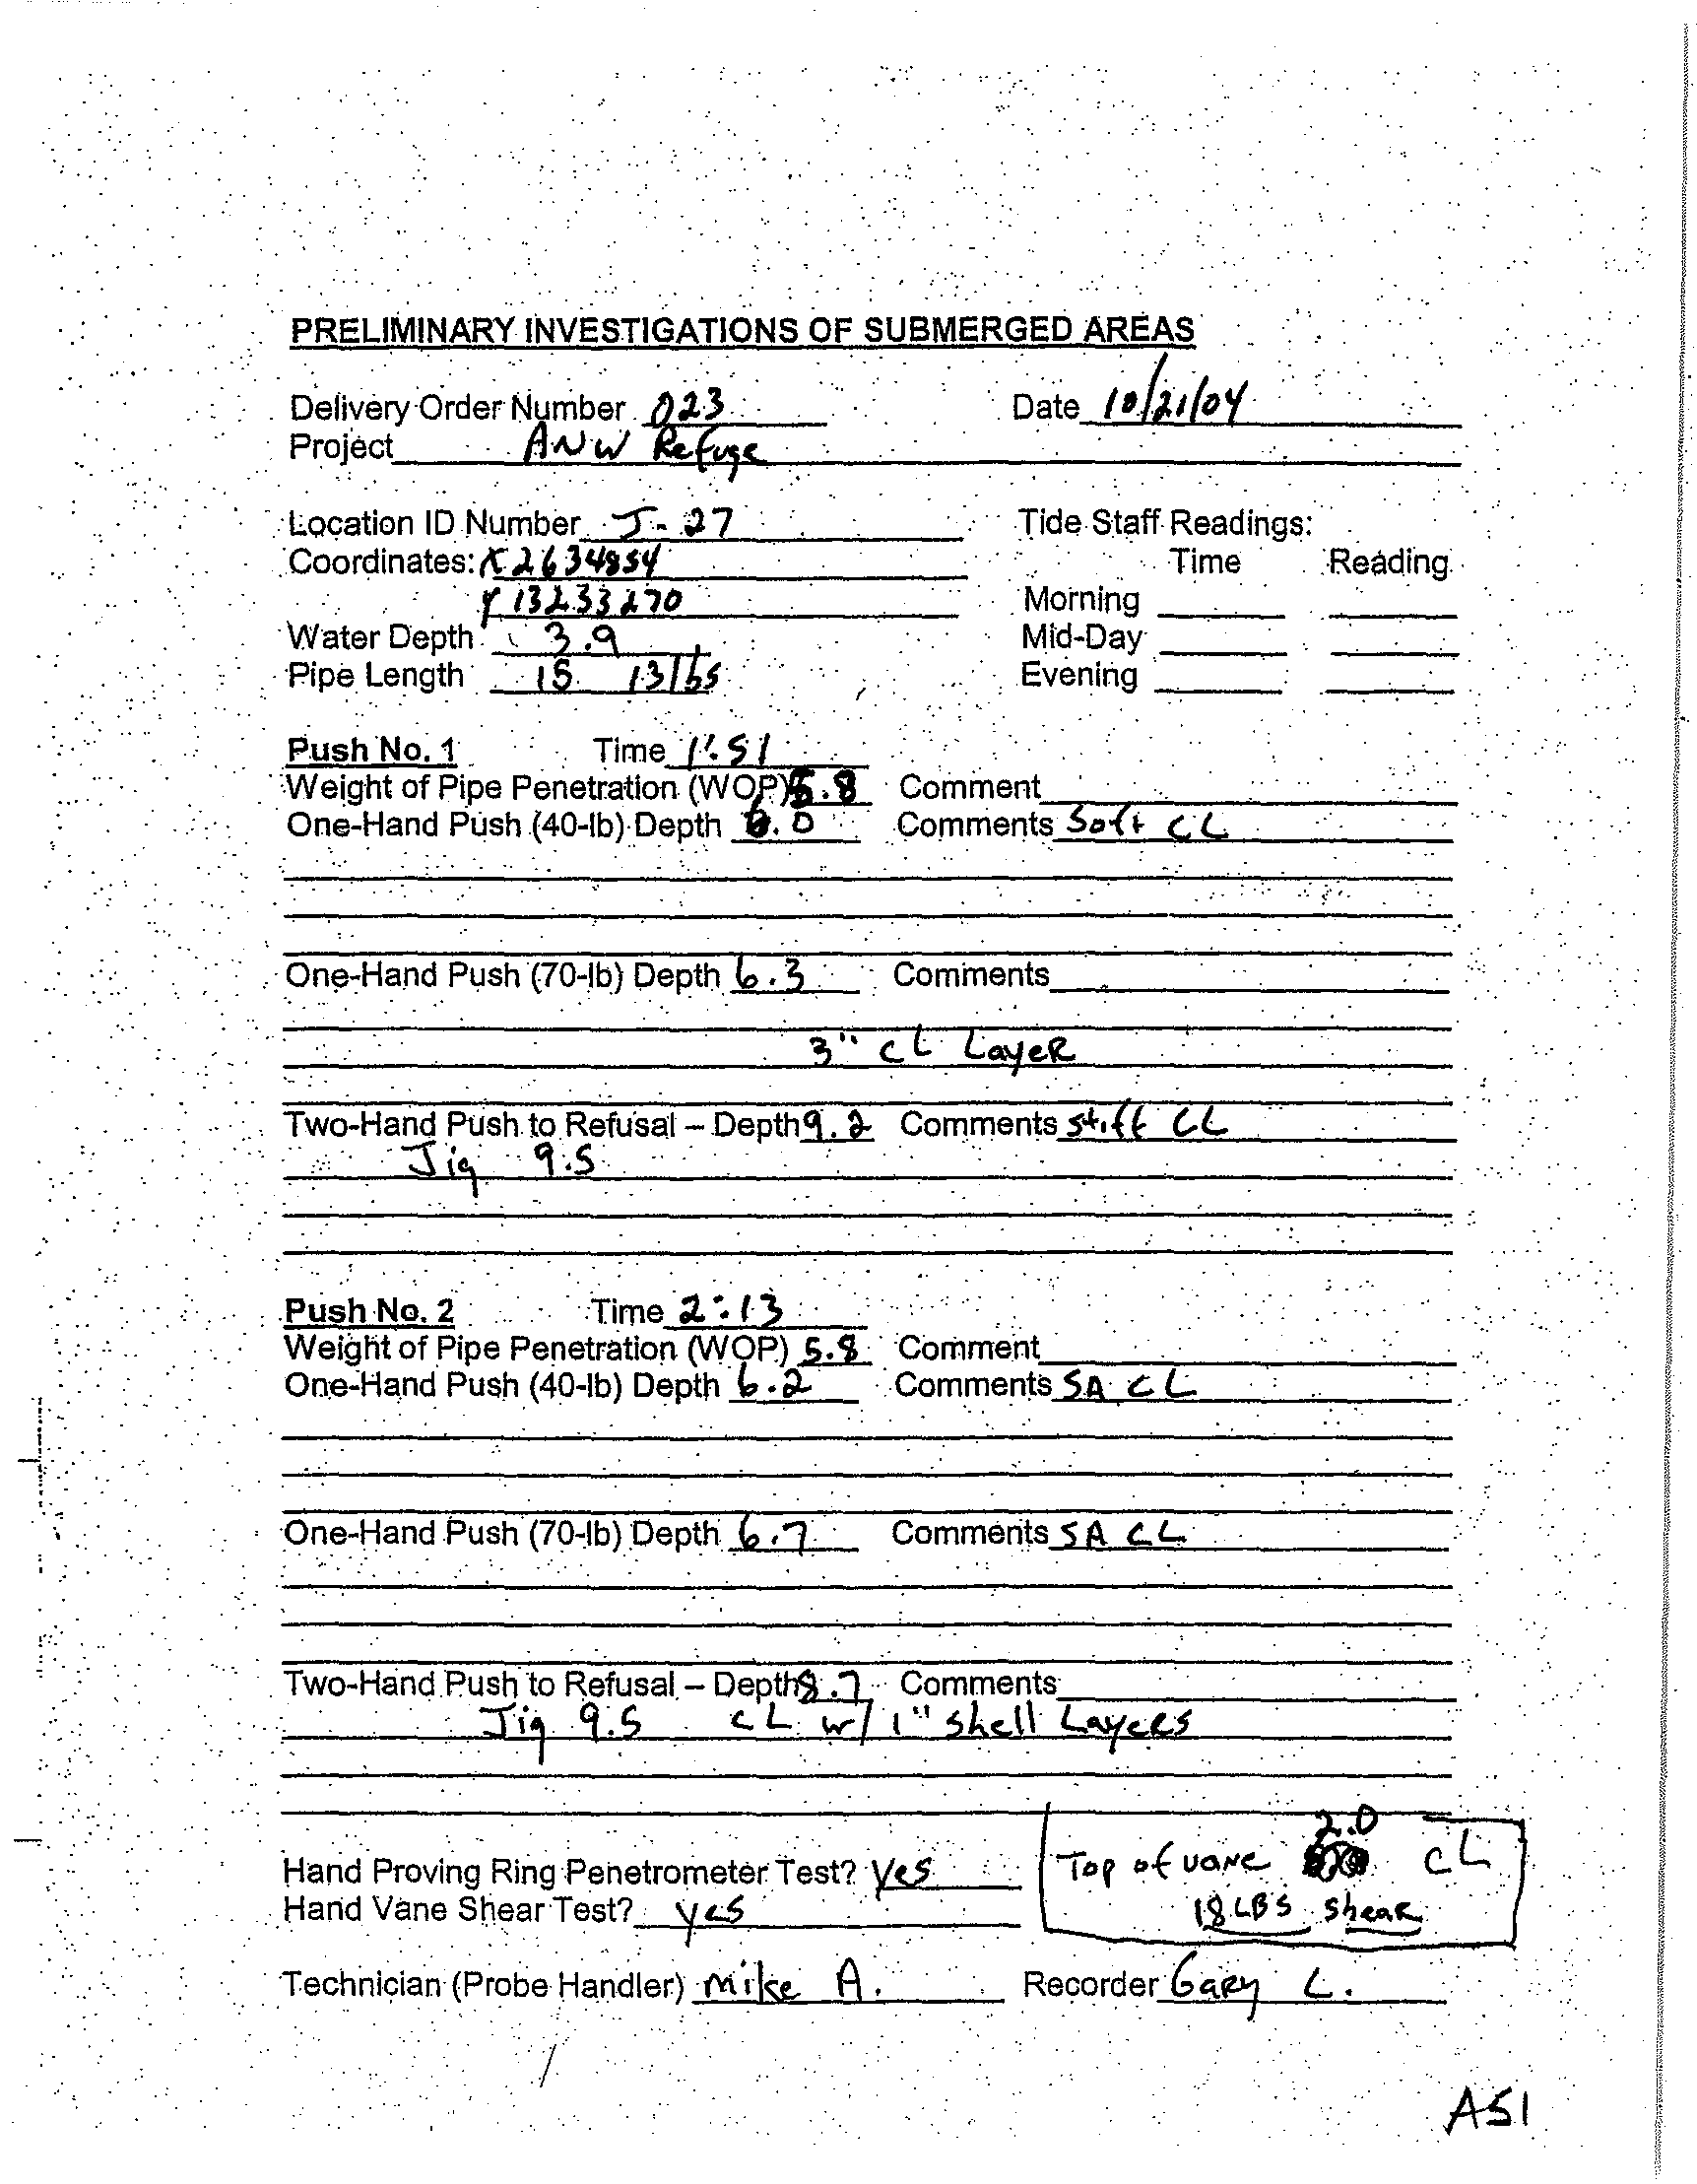 PRELIMINARY INVESTIGATIONS OF SUBMERGED AREAS
Delivery Order Number 023 Date 10/21/04
Project ANW Refuge
Location ID Number J-27 Tide Staff Readings:
Coordinates: X 2634854 Time Reading
Y 13233270 Morning
Water Depth 3.9 Mid-Day
Pipe Length 15 13 lbs Evening
Push No. 1 Time 1:51
Weight of Pipe Penetration (WOP) 5.8 Comment
One-Hand Push (40-lb) Depth 6.0 Comments Soft CL
One-Hand Push (70-lb) Depth 6.3 Comments
3" CL Layer
Two-Hand Push to Refusal – Depth 9.2 Comments stiff CL
Jig 9.5
Push No. 2 Time 2:13
Weight of Pipe Penetration (WOP) 5.8 Comment
One-Hand Push (40-lb) Depth 6.2 Comments SA CL
One-Hand Push (70-lb) Depth 6.7 Comments SA CL
Two-Hand Push to Refusal – Depth 8.7 Comments
Jig 9.5 CL w/ 1" shell Layers
2.0
Hand Proving Ring Penetrometer Test? Yes Top of vane CL
Hand Vane Shear Test? yes 18 LBS Shear
Technician (Probe Handler) Mike A. Recorder Gary L.
A51